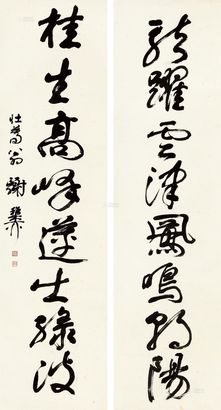 龍躍云津鳳鳴朝陽
桂生高峰蓮出綠波
壯暮翁謝稚